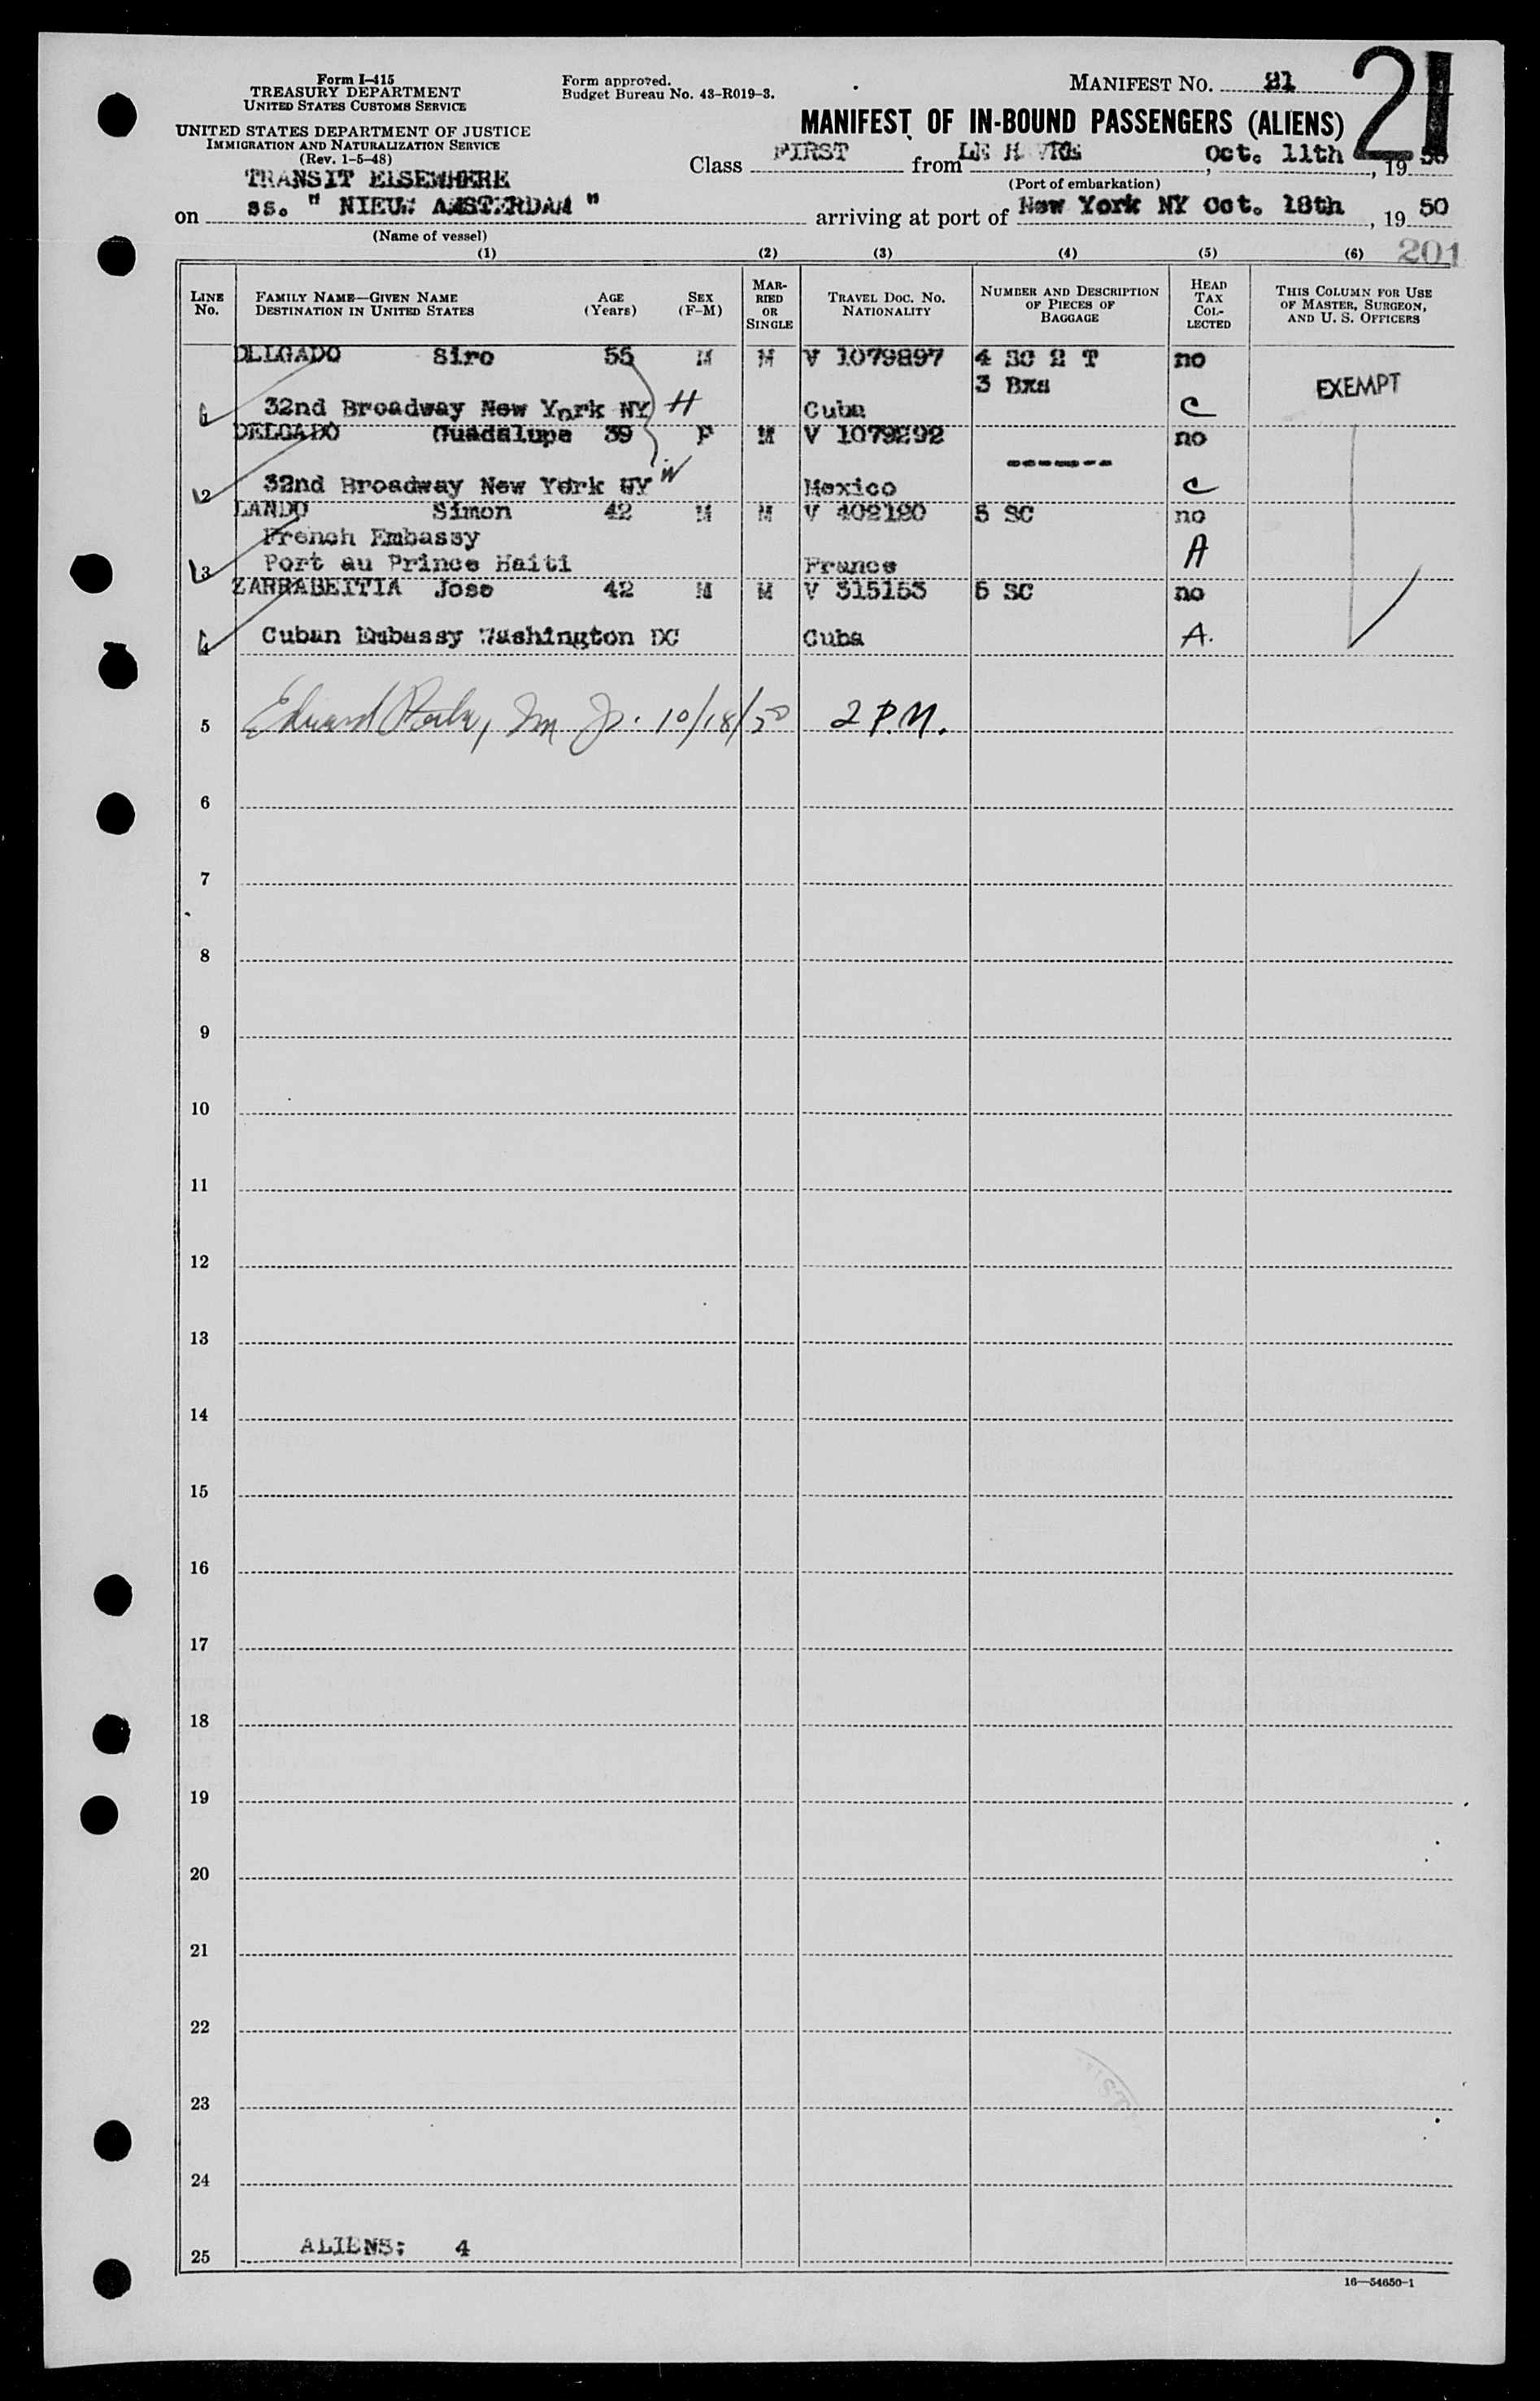 Form I-415
TREASURY DEPARTMENT
UNITED STATES CUSTOMS SERVICE
UNITED STATES DEPARTMENT OF JUSTICE
IMMIGRATION AND NATURALIZATION SERVICE
(Rev. 1-5-48)
Form approved.
Budget Bureau No. 43-R019-3.
MANIFEST NO. 21
21
MANIFEST OF IN-BOUND PASSENGERS (ALIENS)
Class FIRST from LE H VRE, Oct. 11th, 19 50
(Port of embarkation)
TRANSIT ELSEWHERE
on ss. " NIEUW AMSTERDAM " arriving at port of New York NY Oct. 18th, 19 50
(Name of vessel)
201
(1) (2) (3) (4) (5) (6)
LINE No. FAMILY NAME—GIVEN NAME DESTINATION IN UNITED STATES AGE (Years) SEX (F-M) MARRIED OR SINGLE TRAVEL DOC. NO. NATIONALITY NUMBER AND DESCRIPTION OF PIECES OF BAGGAGE HEAD TAX COLLECTED THIS COLUMN FOR USE OF MASTER, SURGEON, AND U. S. OFFICERS
DELGADO Siro 55 M M V 1079897 4 SC 2 T no
3 Bxs EXEMPT
1 32nd Broadway New York NY H Cuba C
DELGADO Guadalupe 39 F M V 1079292 no
-------
2 32nd Broadway New York NY W Mexico C
LANDO Simon 42 M M V 402180 5 SC no
French Embassy A
3 Port au Prince Haiti France
ZARRABEITIA Jose 42 M M V 315153 5 SC no
4 Cuban Embassy Washington DC Cuba A.
5 Edward 10/18/50 2 P.M.
6
7
8
9
10
11
12
13
14
15
16
17
18
19
20
21
22
23
24
25 ALIENS: 4
16—54650-1